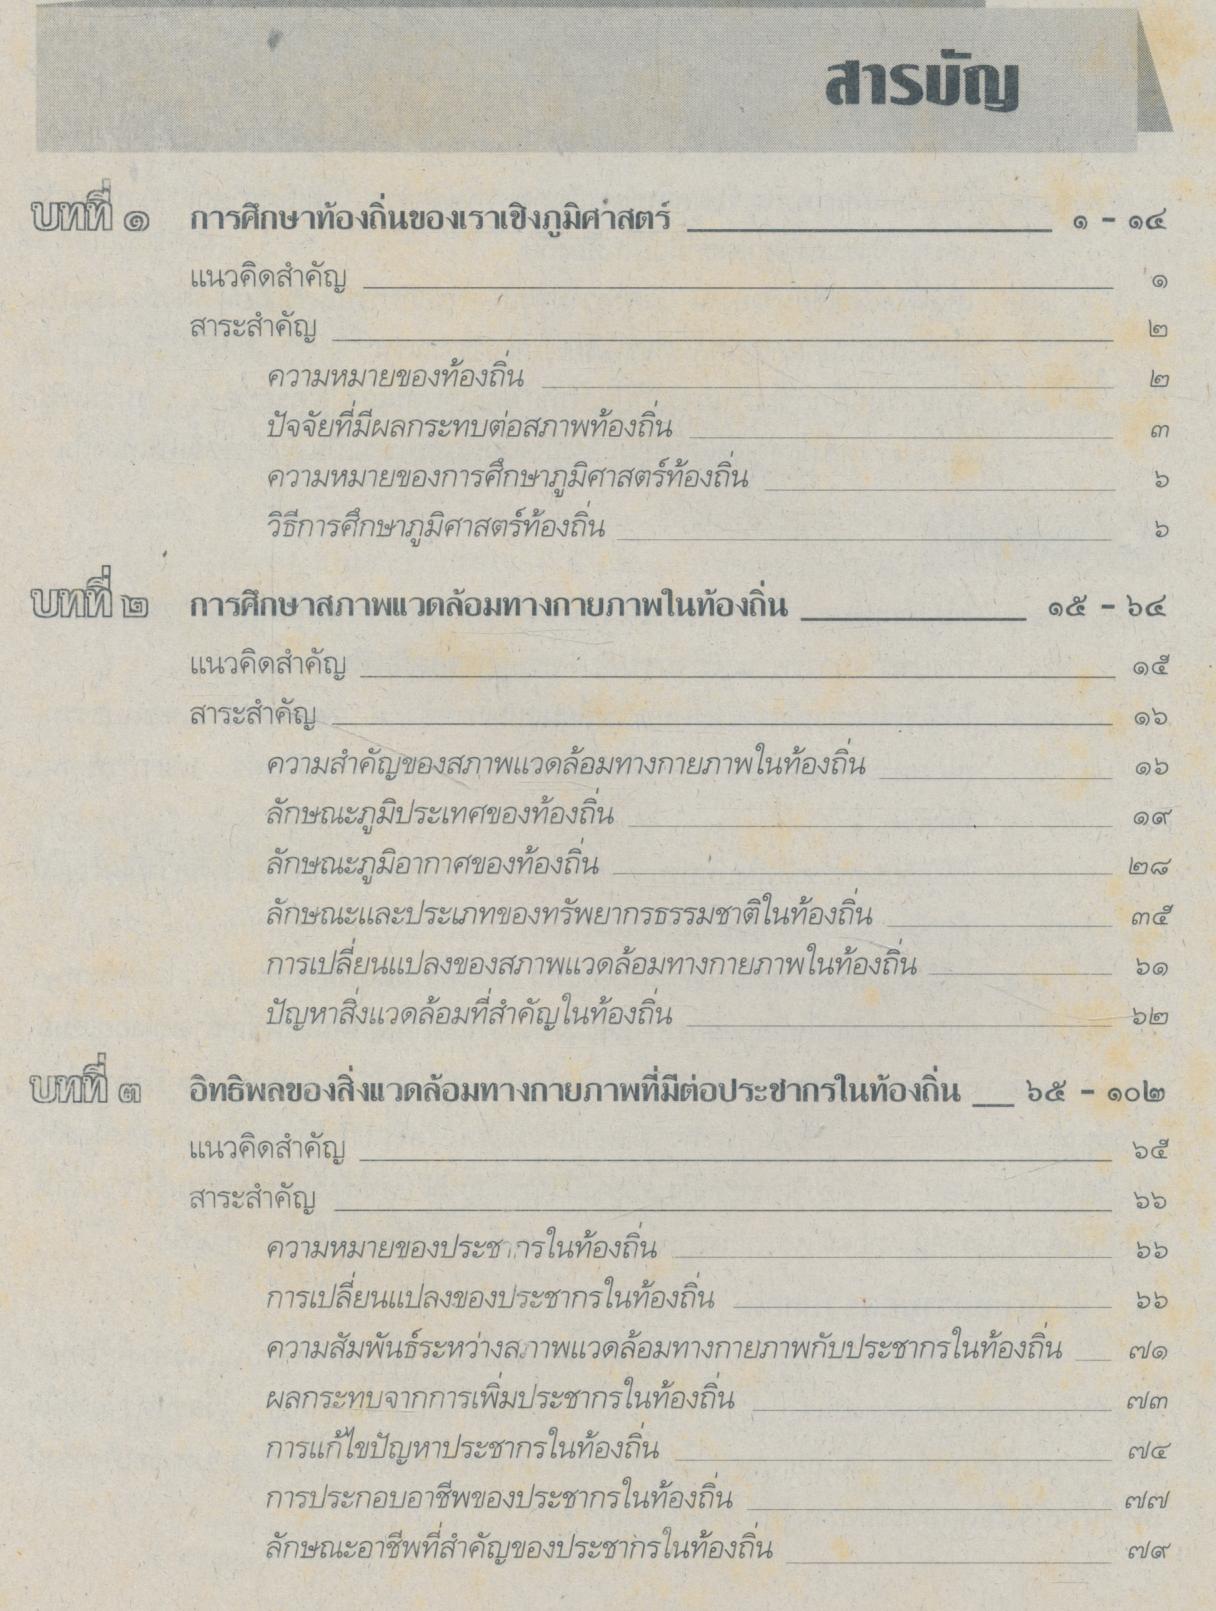 สารบัญ
บทที่ ๑ การศึกษาท้องถิ่นของเราเชิงภูมิศาสตร์ ๑ - ๑๔
แนวคิดสำคัญ ๑
สาระสำคัญ ๒
ความหมายของท้องถิ่น ๒
ปัจจัยที่มีผลกระทบต่อสภาพท้องถิ่น ๓
ความหมายของการศึกษาภูมิศาสตร์ท้องถิ่น ๖
วิธีการศึกษาภูมิศาสตร์ท้องถิ่น ๖
บทที่ ๒ การศึกษาสภาพแวดล้อมทางกายภาพในท้องถิ่น ๑๕ - ๖๔
แนวคิดสำคัญ ๑๕
สาระสำคัญ ๑๖
ความสำคัญของสภาพแวดล้อมทางกายภาพในท้องถิ่น ๑๖
ลักษณะภูมิประเทศของท้องถิ่น ๑๙
ลักษณะภูมิอากาศของท้องถิ่น ๒๘
ลักษณะและประเภทของทรัพยากรธรรมชาติในท้องถิ่น ๓๕
การเปลี่ยนแปลงของสภาพแวดล้อมทางกายภาพในท้องถิ่น ๖๑
ปัญหาสิ่งแวดล้อมที่สำคัญในท้องถิ่น ๖๒
บทที่ ๓ อิทธิพลของสิ่งแวดล้อมทางกายภาพที่มีต่อประชากรในท้องถิ่น ๖๕ - ๑๐๒
แนวคิดสำคัญ ๖๕
สาระสำคัญ ๖๖
ความหมายของประชากรในท้องถิ่น ๖๖
การเปลี่ยนแปลงของประชากรในท้องถิ่น ๖๖
ความสัมพันธ์ระหว่างสภาพแวดล้อมทางกายภาพกับประชากรในท้องถิ่น ๗๑
ผลกระทบจากการเพิ่มประชากรในท้องถิ่น ๗๓
การแก้ไขปัญหาประชากรในท้องถิ่น ๗๔
การประกอบอาชีพของประชากรในท้องถิ่น ๗๗
ลักษณะอาชีพที่สำคัญของประชากรในท้องถิ่น ๗๙